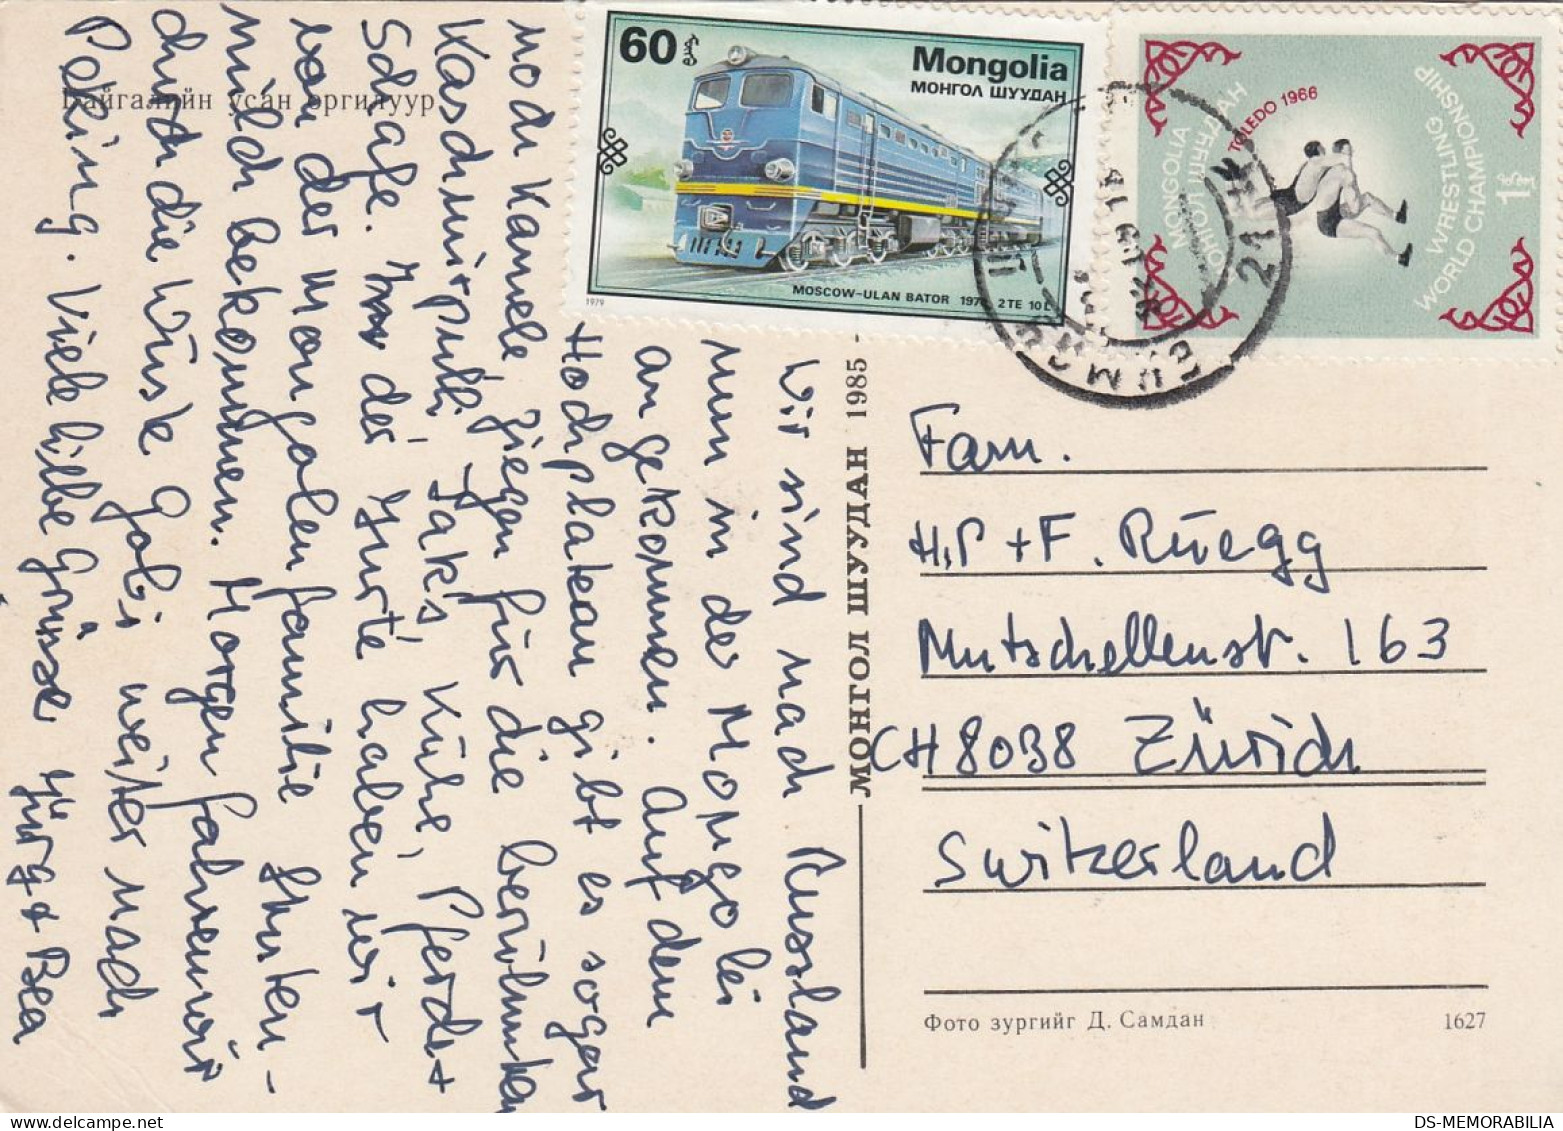 Байгалийн усан оргилуур
60
Mongolia
МОНГОЛ ШУУДАН
MOSCOW-ULAN BATOR 1978, 2TE 10L
1979
MONGOLIA
МОНГОЛ ШУУДАН
TOLEDO 1966
WRESTLING
WORLD CHAMPIONSHIP
1
Wir sind nach Russland
nun in der Mongolei
angekommen. Auf dem
Hochplateau gibt es sogar
noch Kamele, Ziegen für die berühmten
Kaschmirpulli, Jaks, Kühe, Pferde +
Schafe. In der Jurte haben wir
von der Mongolenfamilie Stuten-
milch bekommen. Morgen fahren wir
durch die Wüste Gobi weiter nach
Peking. Viele liebe Grüsse Jürg + Bea
МОНГОЛ ШУУДАН 1985
Fam.
H.P + F. Rüegg
Mutschellenstr. 163
CH 8038 Zürich
Switzerland
Фото зургийг Д. Самдан
1627
DS-MEMORABILIA